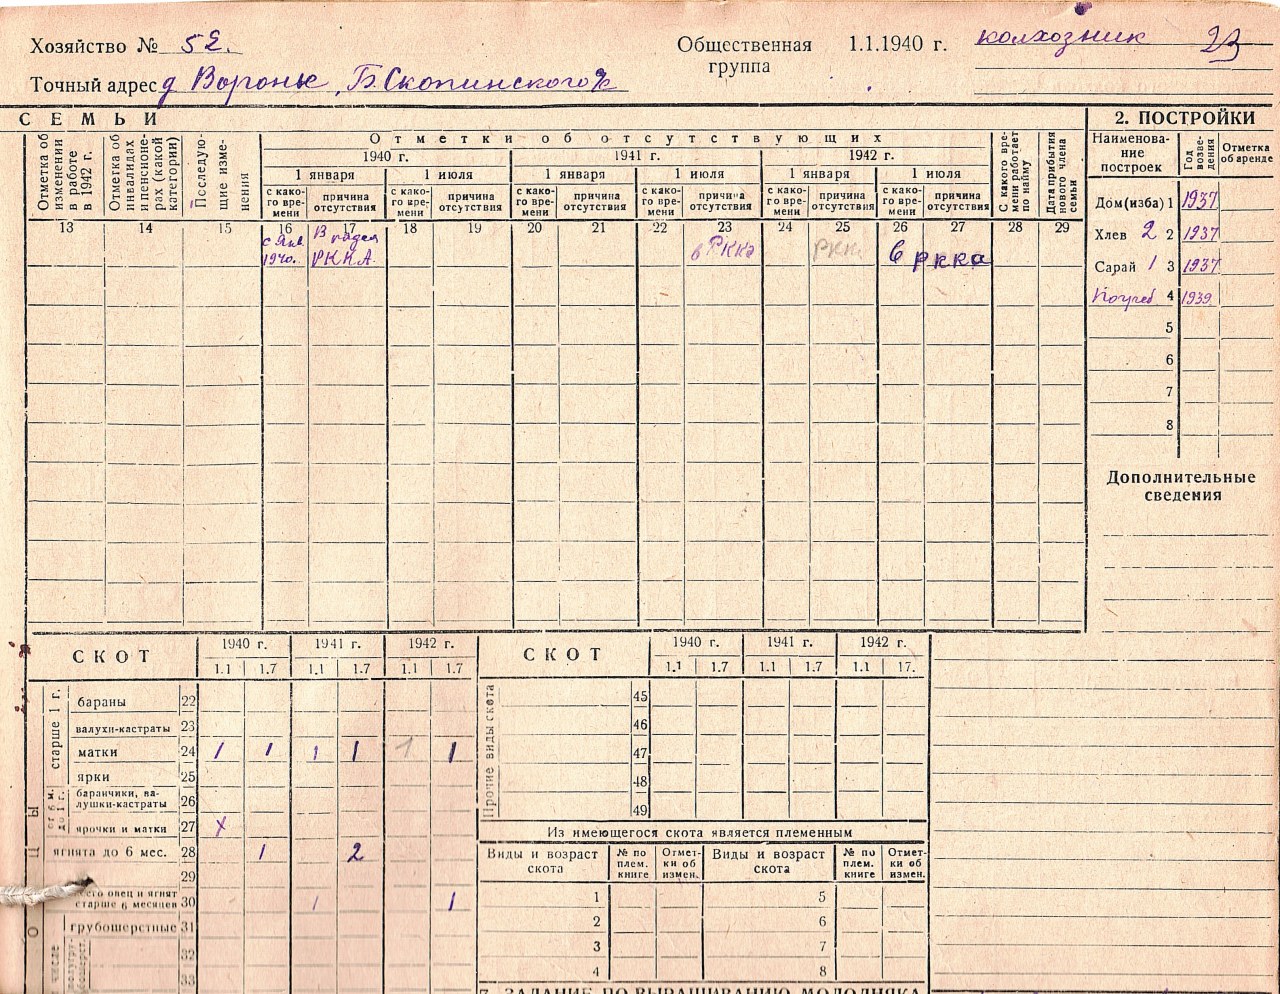 Хозяйство № 52.
Общественная группа 1.1.1940 г. колхозник 23
Точный адрес д Воронье, Б. Скопинского с/с
СЕМЬИ
Отметка об изменении в работе в 1942 г.
Отметка об инвалидах и пенсионерах (какой категории)
Последующие изменения
Отметки об отсутствующих
1940 г. 1941 г. 1942 г.
1 января 1 июля 1 января 1 июля 1 января 1 июля
с како-го вре-мени причина отсутствия с како-го вре-мени причина отсутствия с како-го вре-мени причина отсутствия с како-го вре-мени причина отсутствия с како-го вре-мени причина отсутствия с како-го вре-мени причина отсутствия
С какого вре-мени работает по найму
Дата прибытия нового члена семьи
13 14 15 16 17 18 19 20 21 22 23 24 25 26 27 28 29
с янв 1940. В рядах РККА. в РККА РКК в РККА
2. ПОСТРОЙКИ
Наименова-ние построек Год возве-дения Отметка об аренде
Дом (изба) 1 1937
Хлев 2 2 1937
Сарай 1 3 1937
Погреб 4 1939.
5
6
7
8
Дополнительные сведения
СКОТ 1940 г. 1941 г. 1942 г.
1.1 1.7 1.1 1.7 1.1 1.7
старше 1 г.
бараны 22
валухи-кастраты 23
матки 24 1 1 1 1 1 1
ярки 25
от 6 м. до 1 г.
баранчики, ва-лушки-кастраты 26
ярочки и матки 27 х
ягнята до 6 мес. 28 1 2
29
всего овец и ягнят старше 6 месяцев 30 1 1
грубошерстные 31
32
33
О Ц Ы
СКОТ 1940 г. 1941 г. 1942 г.
1.1 1.7 1.1 1.7 1.1 17.
Прочие виды скота
45
46
47
48
49
Из имеющегося скота является племенным
Виды и возраст скота № по плем. книге Отмет-ки об измен. Виды и возраст скота № по плем. книге Отмет-ки об измен.
1 5
2 6
3 7
4 8
7. ЗАДАНИЕ ПО ВЫРАЩИВАНИЮ МОЛОДНЯКА